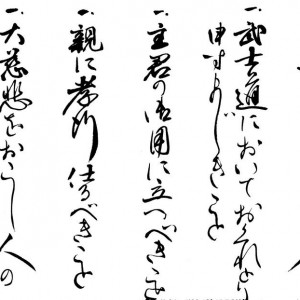 一、武士道においておくれとり
申すまじきこと
一、主君の御用に立つべきこと
一、親に孝行仕るべきこと
一、大慈悲をおこし人の